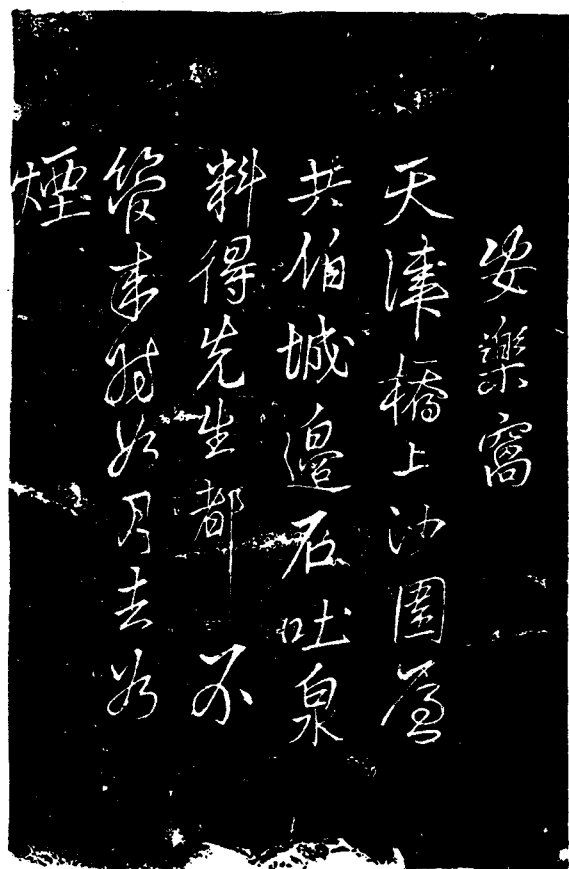 安樂窩
天津橋上沙團
共伯城邊石吐泉
料得先生都不
管来時如月去如
煙